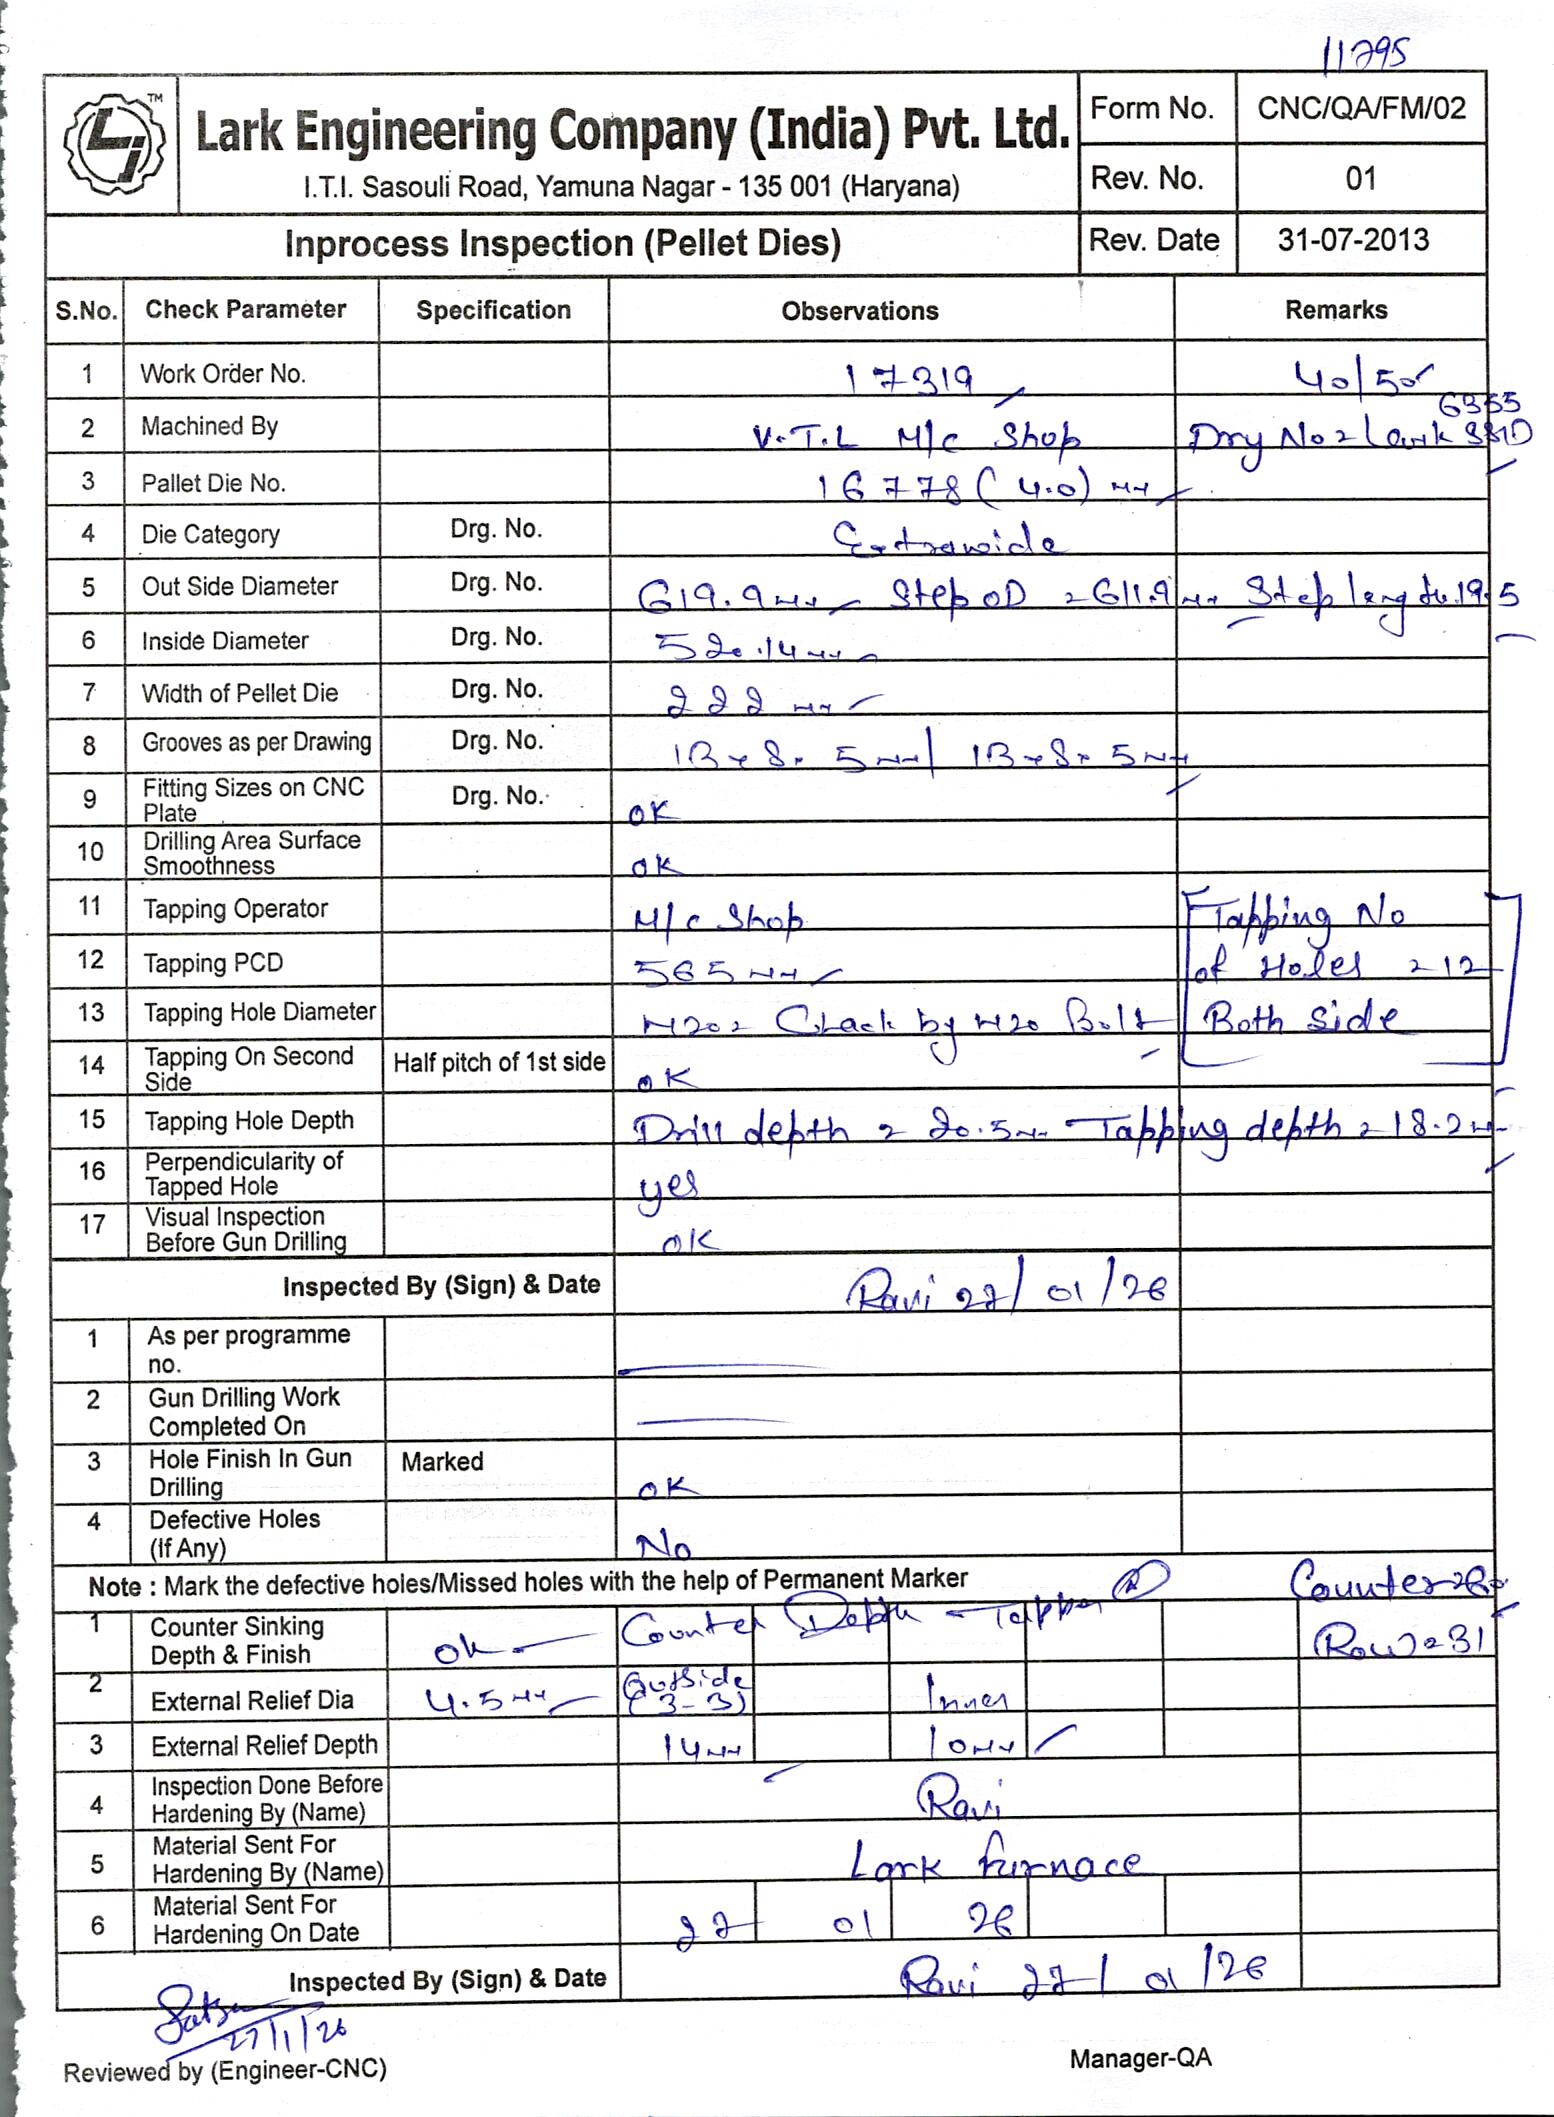 11795
TM
Lark Engineering Company (India) Pvt. Ltd.
I.T.I. Sasouli Road, Yamuna Nagar - 135 001 (Haryana)
Form No. CNC/QA/FM/02
Rev. No. 01
Inprocess Inspection (Pellet Dies)
Rev. Date 31-07-2013
S.No. Check Parameter Specification Observations Remarks
1 Work Order No. 17319 40/50
2 Machined By V.T.L M/c Shop Drg No = Lark
3 Pallet Die No. 16778 (4.0) mm
4 Die Category Drg. No. Extrawide
5 Out Side Diameter Drg. No. 619.9mm Step OD = 611.9mm Step length 19.5
6 Inside Diameter Drg. No. 520.14mm
7 Width of Pellet Die Drg. No. 222 mm
8 Grooves as per Drawing Drg. No. 13 x 8 x 5mm / 13 x 8 x 5mm
9 Fitting Sizes on CNC Plate Drg. No. OK
10 Drilling Area Surface Smoothness OK
11 Tapping Operator M/c Shop Tapping No
12 Tapping PCD 565mm of Holes = 12
13 Tapping Hole Diameter M20 = Chack by M20 Bolt Both Side
14 Tapping On Second Side Half pitch of 1st side OK
15 Tapping Hole Depth Drill depth = 20.5mm Tapping depth = 18.2mm
16 Perpendicularity of Tapped Hole yes
17 Visual Inspection Before Gun Drilling OK
Inspected By (Sign) & Date Ravi 27/01/26
1 As per programme no.
2 Gun Drilling Work Completed On
3 Hole Finish In Gun Drilling Marked OK
4 Defective Holes (If Any) No
Note : Mark the defective holes/Missed holes with the help of Permanent Marker
1 Counter Sinking Depth & Finish ok Counter Depth - Tapper Row = 31
2 External Relief Dia 4.5mm Outside (3-3) Inner
3 External Relief Depth 14mm 10mm
4 Inspection Done Before Hardening By (Name) Ravi
5 Material Sent For Hardening By (Name) Lark furnace
6 Material Sent For Hardening On Date 27 01 26
Inspected By (Sign) & Date Ravi 27/01/26
27/1/26
Reviewed by (Engineer-CNC)
Manager-QA